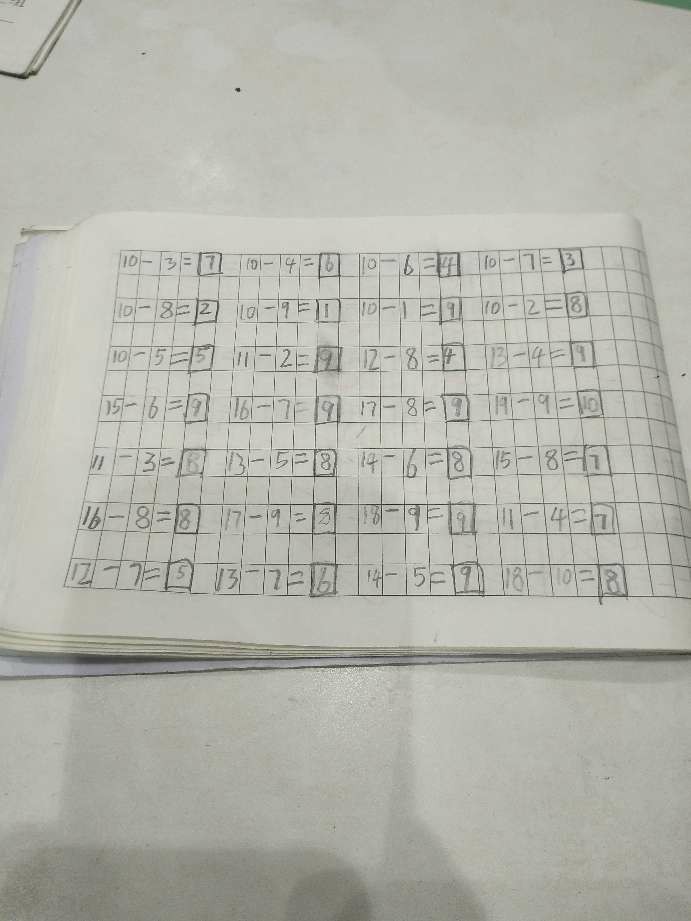 10-3=7 10-4=6 10-6=4 10-7=3
10-8=2 10-9=1 10-1=9 10-2=8
10-5=5 11-2=9 12-8=4 13-4=9
15-6=9 16-7=9 17-8=9 19-9=10
11-3=8 13-5=8 14-6=8 15-8=7
16-8=8 17-9=8 18-9=9 11-4=7
12-7=5 13-7=6 14-5=9 18-10=8